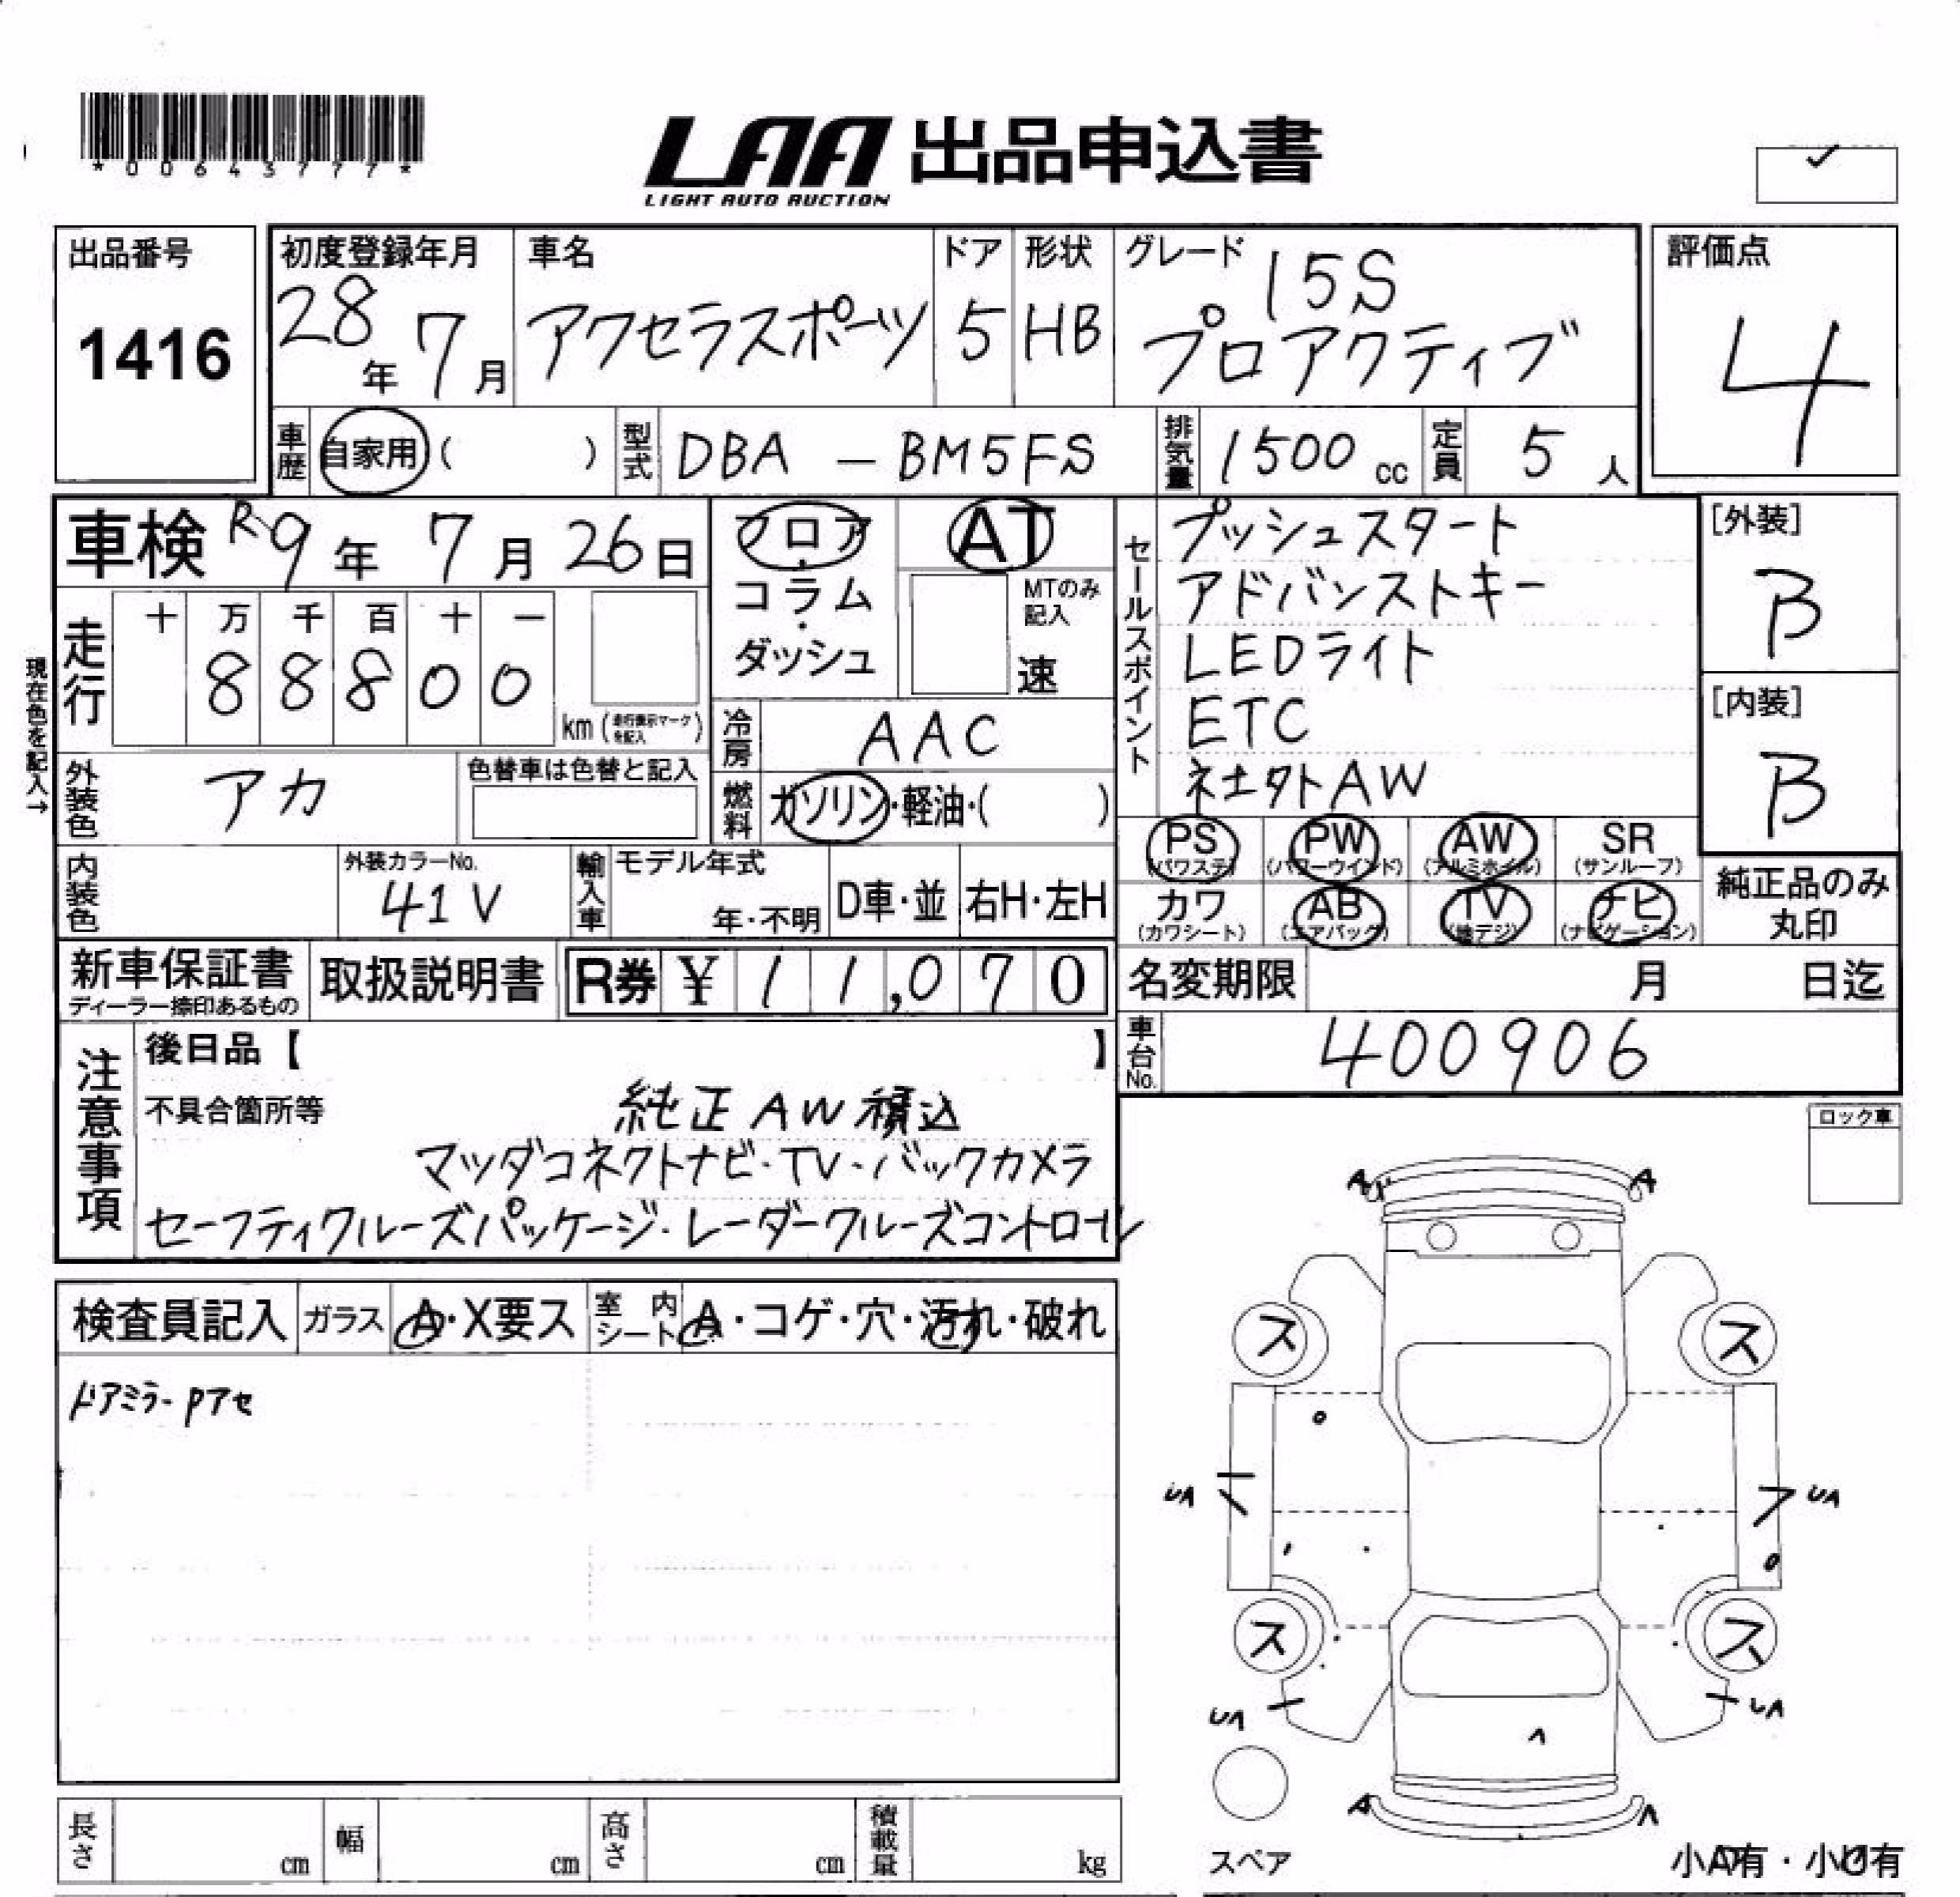 *00643777*
LAA 出品申込書
LIGHT AUTO AUCTION
出品番号
1416
初度登録年月
28年 7月
車名
アクセラスポーツ
ドア
5
形状
HB
グレード
15S
プロアクティブ
評価点
4
車歴 自家用 ( )
型式 DBA - BM5FS
排気量 1500 cc
定員 5 人
車検 R9年 7月 26日
フロア・コラム・ダッシュ
AT
MTのみ記入
速
セールスポイント
プッシュスタート
アドバンストキー
LEDライト
ETC
社外AW
[外装]
B
[内装]
B
現在色を記入→
走行
十 万 千 百 十 一
8 8 8 0 0
km (走行表示マークを記入)
冷房 AAC
燃料 ガソリン・軽油・( )
外装色 アカ
色替車は色替と記入
内装色
外装カラーNo.
41V
輸入車
モデル年式
年・不明
D車・並
右H・左H
PS (パワステ)
PW (パワーウインド)
AW (アルミホイル)
SR (サンルーフ)
カワ (カワシート)
AB (エアバック)
TV (地デジ)
ナビ (ナビゲーション)
純正品のみ丸印
新車保証書
ディーラー捺印あるもの
取扱説明書
R券 ¥ 11,070
名変期限 月 日迄
車台No. 400906
注意事項
後日品【 】
不具合箇所等
純正AW積込
マツダコネクトナビ・TV・バックカメラ
セーフティクルーズパッケージ・レーダークルーズコントロール
ロック車
検査員記入
ガラス A・X要ス
室内シート A・コゲ・穴・汚れ・破れ
ドアミラーPアセ
A A
ス ス
UA UA
ス ス
UA UA
A
A A
スペア
小A有・小U有
長さ cm
幅 cm
高さ cm
積載量 kg